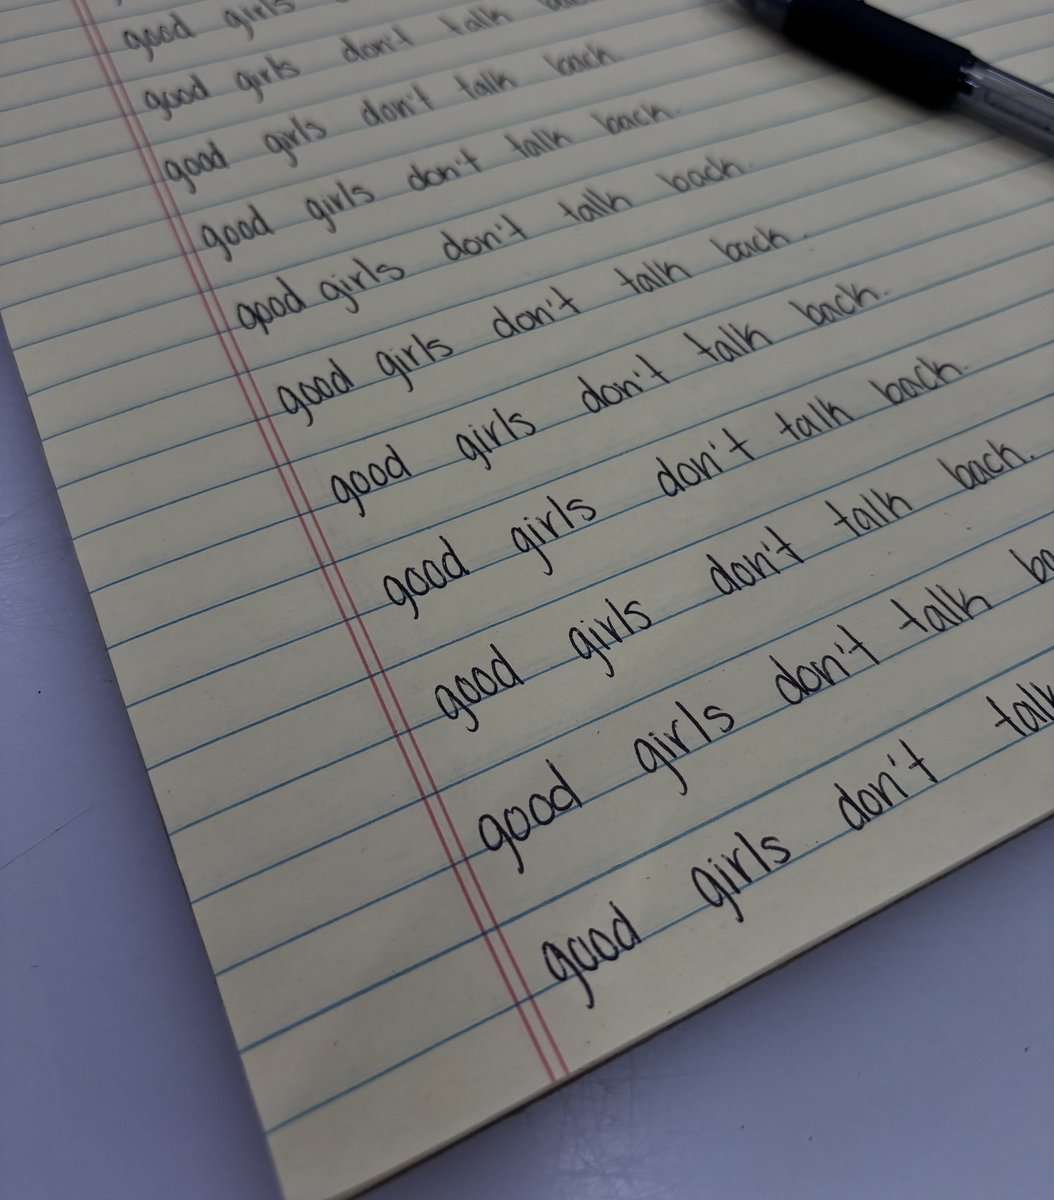 good girls
good girls don't talk
good girls don't talk back.
good girls don't talk back.
good girls don't talk back.
good girls don't talk back.
good girls don't talk back.
good girls don't talk back.
good girls don't talk back.
good girls don't talk ba
good girls don't talk